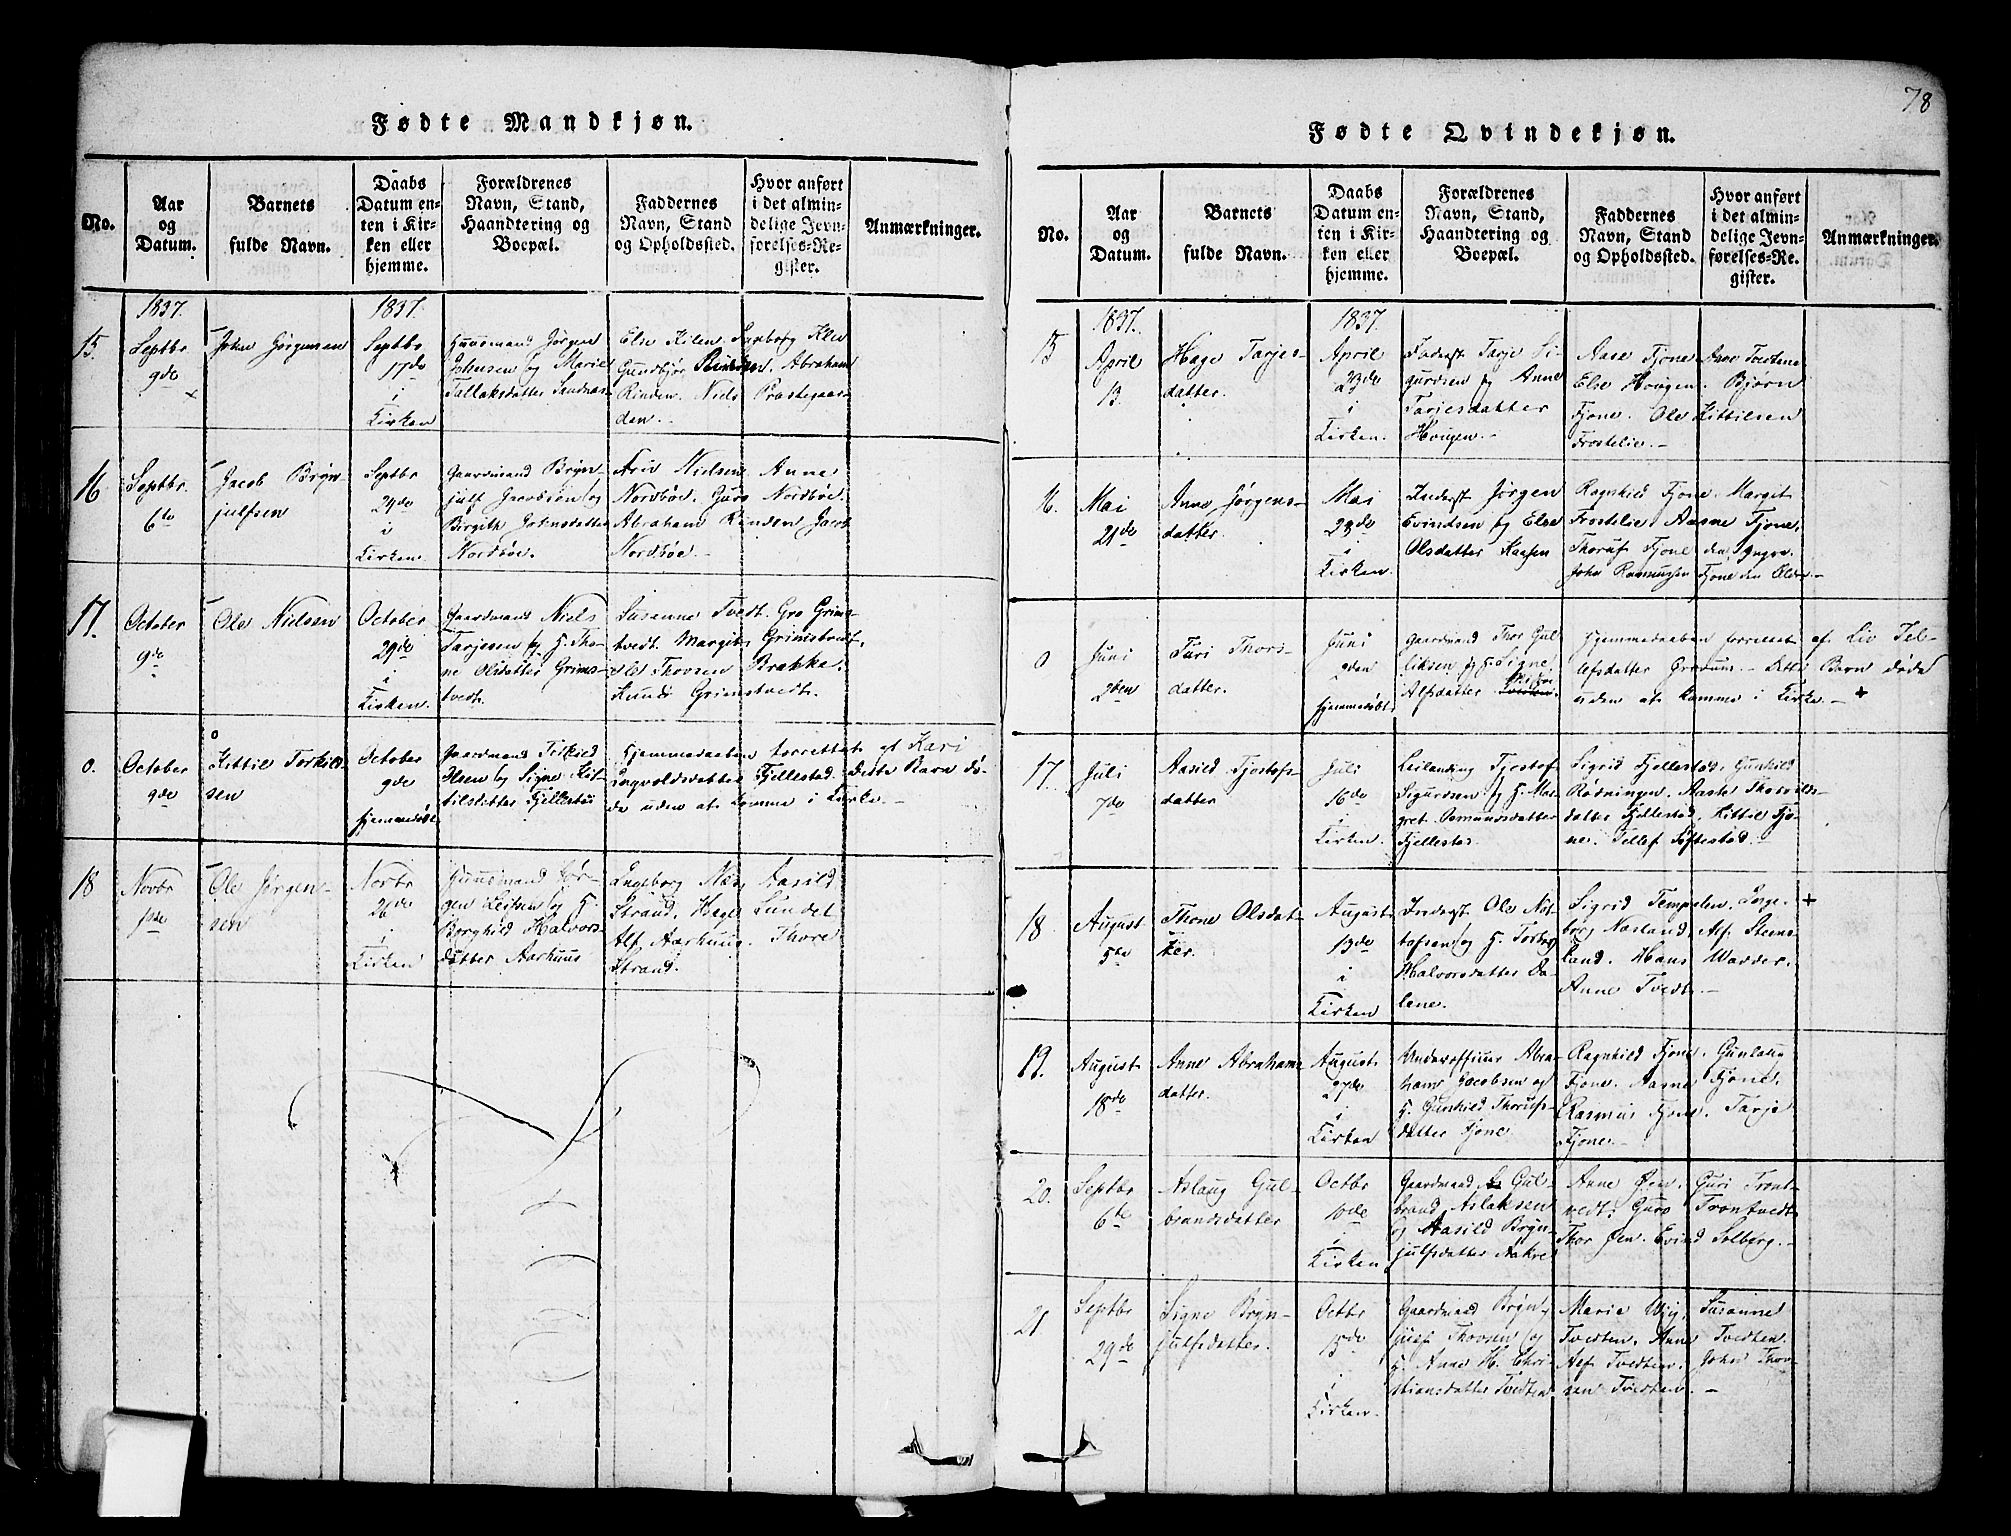 78
Fødte Mandkjøn.
No.
Aar
og
Datum.
Barnets
fulde Navn.
Daabs
Datum en-
ten i Kir-
ken eller
hjemme.
Forældrenes
Navn, Stand,
Haandtering og
Boepæl.
Faddernes
Navn, Stand
og Opholdssted.
Hvor anført
i det almin-
delige Jevn-
førelses-Re-
gister.
Anmærkninger.
15.
1837.
Septbr
9de
John Jörgensen
1837.
Septbr
17de
i
Kirken
Huusmand Jörgen
Johnsen og Marie
Tallaksdatter Sandnæs
Else Kilen Ingeborg Klev
Gundbjör Rinden. Abraham
Rinden. Niels Præstegaar-
den.
16
Septbr.
6te
Jacob Bryn-
julfsen
Septbr
24de
i
Kirken.
Gaardmand Bryn-
julf Jacobsen og
Birgith Johnsdatter
Nordböe.
Nielsen Anne
Nordböe. Guro Nordböe.
Abraham Rinden Jacob
Nordböe
17.
October
9de
Ole Nielsen
October
29de
i
Kirken.
Gaardmand Niels
Tarjesen og H. Tho-
ne Olsdatter Grims-
tvedt.
Susanne Tvedt. Gro Grims-
tvedt Margit Grimstvedt.
Thovsen Brække.
Knud Grimstvedt.
0.
October
9de
Kittil Torkild-
sen
October
9de
hjemmedöbt
Gaardmand Torkild
Olsen og Signe Kit-
tilsdatter Fjellestad
Hjemmedaaben forrettet af Kari
Engvoldsdatter Fjellestad. Dette Barn dö-
de uden at komme i Kirke.
18
Novbr
1de
Ole Jörgen-
sen
Novbr
26de
i
Kirken
Huusmand Jör-
gen Leifsen og H.
Borghild Halvors-
datter Aarhuus
Ingeborg Næs Aasild
Strand. Hage Lundet
Alf Aarhuus. Thore
Strand.
Fødte Qvindekjøn.
No.
Aar
og
Datum.
Barnets
fulde Navn.
Daabs
Datum en-
ten i Kir-
ken eller
hjemme.
Forældrenes
Navn, Stand,
Haandtering og
Boepæl.
Faddernes
Navn, Stand
og Opholdssted.
Hvor anført
i det almin-
delige Jevn-
førelses-Re-
gister.
Anmærkninger.
15
1837.
April
13.
Hage Tarjes-
datter.
1837.
April
23de
i
Kirken.
Inderst Tarje Si-
gurdsen og Anne
Tarjesdatter
Hougen.
Aase Fjone Anne Tvedten
Else Hougen. Björn
Fjone. Ole Kittilsen
Frostelie.
16.
Mai
21de
Anne Jörgens-
datter.
Mai
28de
i
Kirken.
Inderst Jörgen
Evindsen og Else
Olsdatter Kaasen
Ragnhild Fjone. Margit
Frostelie, Aasne Fjone.
Thoruf Fjone den yngre.
John Rasmussen Fjone den Ældre.
0
Juni
2den
Turi Thors-
datter.
Juni
2den
hjemmedöbt
Gaardmand Thor Gul-
liksen og H. Signe
Alfsdatter
Hjemmedaaben forrettet af Liv Tel-
lefsdatter Graver. Dette Barn döde
uden at komme i Kirke. +
17
Juli
7de
Aasild Fjostofs-
datter
Juli
16de
i
Kirken.
Leilænding Fjostof
Sigurdsen og H. Mar-
gret Osmundsdatter
Fjellestad
Sigrid Fjellestad, Gunhild
Rödningen. Aaste Thorvilds-
datter Fjellestad. Kittil Fjo-
ne. Tellef Söftestad.
18.
August
5te
Thone Olsdat-
ter.
August
13de
i
Kirken
Inderst Ole Not-
tofsen og H. Torbor
Halvorsdatter Da-
lene.
Sigrid Tempelen. Inge- +
borg Næsland. Alf Steens-
land. Hans Wadder.
Anne Tvedt.
19.
August
18de
Anne Abrahams-
datter.
August
27de
i
Kirken
Underofficeer Abra-
ham Jacobsen og
H. Gunhild Thorufs-
datter Fjone
Ragnhild Fjone. Gunlaug
Fjone. Aasne Fjone.
Rasmus Fjone. Tarje
Fjone.
20.
Septbr
6te
Aslaug Gul-
brandsdatter
Octbr
10de
i
Kirken
Gaardmand Gul-
brand Aslaksen
og Aasild Bryn-
julfsdatter Aakre
Anne Öen. Guri Tront-
vedt. Guro Trontvedt.
Thor Öen. Evind Solberg.
21
Septbr
29de
Signe Bryn-
julfsdatter.
Octbr
15de
i
Kirken.
Gaardmand Bryn-
julf Thovsen og
H. Anne H. Chri-
stiansdatter Tvedten
Marie Wiig. Susanne
Tvedten. Anne Tvedten.
Alf Tvedten. John Thov-
sen Tvedten.